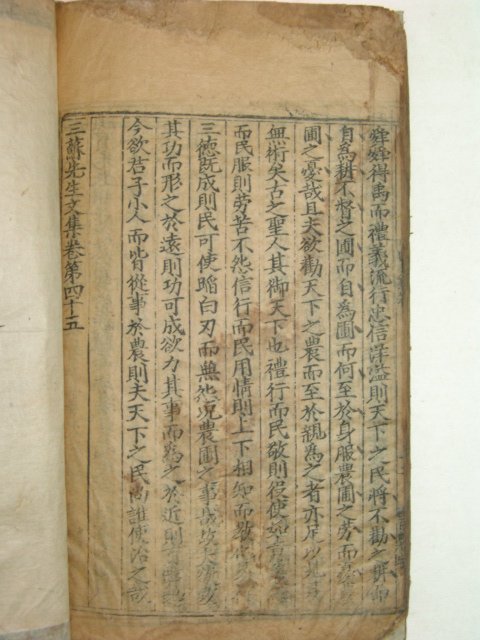 舜舜得禹而禮義流行忠信洋溢則天下之民將不勸之耕而
自爲耕不督之圃而自爲圃而何至於身服農圃之勞而憂農
圃之憂哉且夫欲勸天下之農而至於親爲之者亦足以見其
無術矣古之聖人其御天下也禮行而民敬則役使如
而民服則勞苦不怨信行而民用情則上下相知而教
三德旣成則民可使蹈白刃而無怨况農圃之事哉故
其功而形之於遠則功可成欲力其事而爲之於近則
今欲君子小人而皆從事於農則夫天下之民尚誰使治之哉
三蘇先生文集卷第四十五